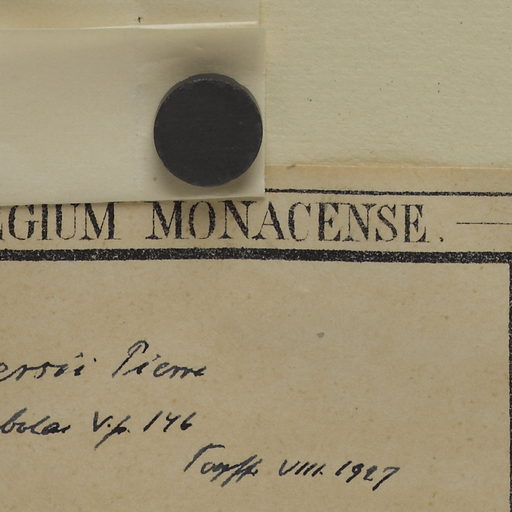 EGIUM MONACENSE.
ersii Pierre
bolae V. p. 146
VIII. 1927